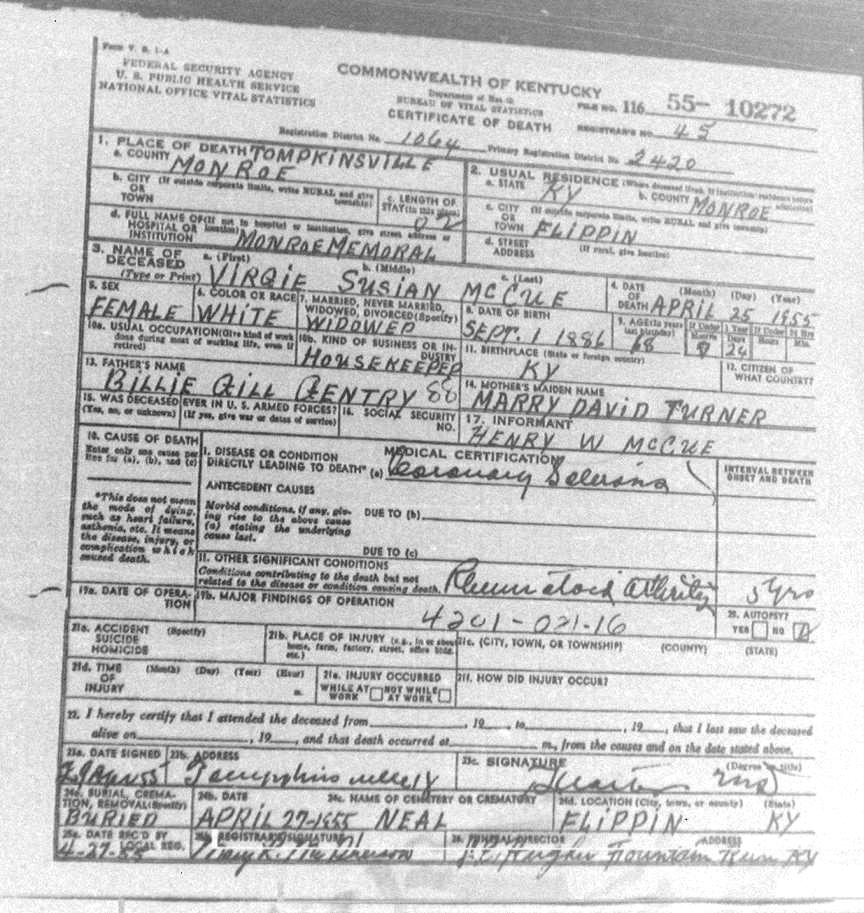 Form V. S. 1-A
FEDERAL SECURITY AGENCY
U. S. PUBLIC HEALTH SERVICE
NATIONAL OFFICE VITAL STATISTICS
COMMONWEALTH OF KENTUCKY
BUREAU OF VITAL STATISTICS
CERTIFICATE OF DEATH
FILE NO. 116 55- 10272
REGISTRAR'S NO. 45
Registration District No. 1064 Primary Registration District No. 2420
1. PLACE OF DEATH TOMPKINSVILLE
a. COUNTY MONROE
2. USUAL RESIDENCE (Where deceased lived. If institution: residence before admission)
a. STATE KY b. COUNTY MONROE
b. CITY (If outside corporate limits, write RURAL and give township)
OR
TOWN
c. LENGTH OF
STAY (in this place)
c. CITY (If outside corporate limits, write RURAL and give township)
OR
TOWN FLIPPIN
d. FULL NAME OF (If not in hospital or institution, give street address or location)
HOSPITAL OR
INSTITUTION MONROE MEMORAL
d. STREET (If rural, give location)
ADDRESS
3. NAME OF DECEASED
(Type or Print)
a. (First) b. (Middle) c. (Last)
VIRGIE SUSIAN MCCUE
4. DATE OF DEATH (Month) (Day) (Year)
APRIL 25 1955
5. SEX
FEMALE
6. COLOR OR RACE
WHITE
7. MARRIED, NEVER MARRIED,
WIDOWED, DIVORCED (Specify)
WIDOWED
8. DATE OF BIRTH
SEPT. 1 1886
9. AGE (In years last birthday) If Under 1 Year If Under 24 Hrs
Months Days Hours Min.
68 24
10a. USUAL OCCUPATION (Give kind of work done during most of working life, even if retired)
10b. KIND OF BUSINESS OR INDUSTRY
HOUSEKEEPER
11. BIRTHPLACE (State or foreign country)
KY
12. CITIZEN OF
WHAT COUNTRY?
13. FATHER'S NAME
BILLIE GILL GENTRY 88
14. MOTHER'S MAIDEN NAME
MARRY DAVID TURNER
15. WAS DECEASED EVER IN U. S. ARMED FORCES?
(Yes, no, or unknown) (If yes, give war or dates of service)
16. SOCIAL SECURITY
NO.
17. INFORMANT
HENRY W MCCUE
18. CAUSE OF DEATH
Enter only one cause per line for (a), (b), and (c)
MEDICAL CERTIFICATION
INTERVAL BETWEEN
ONSET AND DEATH
I. DISEASE OR CONDITION
DIRECTLY LEADING TO DEATH* (a) Coronary
*This does not mean the mode of dying, such as heart failure, asthenia, etc. It means the disease, injury, or complication which caused death.
ANTECEDENT CAUSES
Morbid conditions, if any, giving rise to the above cause (a) stating the underlying cause last.
DUE TO (b)
DUE TO (c)
II. OTHER SIGNIFICANT CONDITIONS
Conditions contributing to the death but not related to the disease or condition causing death. Rheumatoid arthritis 5 yrs
19a. DATE OF OPERATION
19b. MAJOR FINDINGS OF OPERATION
4201-021-16
20. AUTOPSY?
YES NO
21a. ACCIDENT (Specify)
SUICIDE
HOMICIDE
21b. PLACE OF INJURY (e.g., in or about home, farm, factory, street, office bldg., etc.)
21c. (CITY, TOWN, OR TOWNSHIP) (COUNTY) (STATE)
21d. TIME (Month) (Day) (Year) (Hour)
OF
INJURY m.
21e. INJURY OCCURRED
WHILE AT WORK NOT WHILE AT WORK
21f. HOW DID INJURY OCCUR?
22. I hereby certify that I attended the deceased from , 19 to , 19 , that I last saw the deceased
alive on , 19 , and that death occurred at m., from the causes and on the date stated above.
23a. DATE SIGNED
23b. ADDRESS
Tompkinsville Ky
23c. SIGNATURE (Degree or title)
MD
24a. BURIAL, CREMATION, REMOVAL (Specify)
BURIED
24b. DATE
APRIL 27-1955
24c. NAME OF CEMETERY OR CREMATORY
NEAL
24d. LOCATION (City, town, or county) (State)
FLIPPIN KY
25a. DATE REC'D BY LOCAL REG.
4-27-55
25b. REGISTRAR'S SIGNATURE
26. FUNERAL DIRECTOR ADDRESS
Fountain Run KY